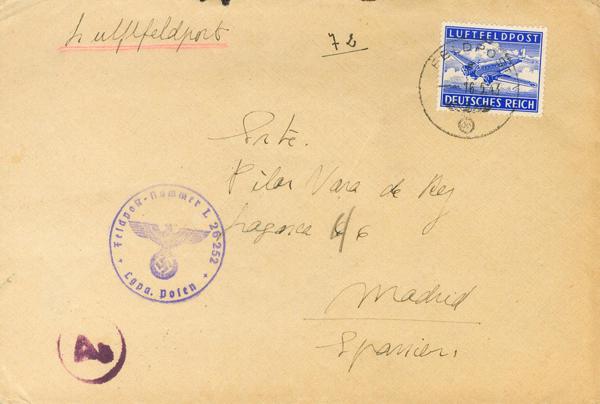 Luftfeldport
72
LUFTFELDPOST
FELDPOST
16.5.43
DEUTSCHES REICH
Srte.
Pilar Vara de Rey
Lagasca 6
Madrid
Spanien.
Feldpost-Nummer L 26252
Lgpa. Posen
A